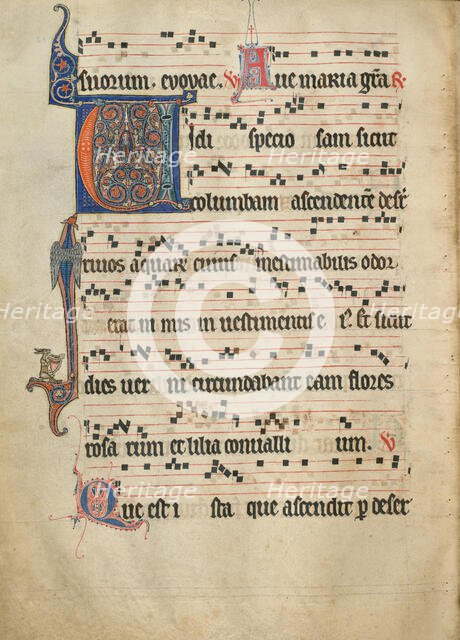 suorum. evovae. V Aue maria gr̃a R
Vidi speciosam sicut
columbam ascendentẽ desup̱
riuos aquarũ cuius inestimabilis odor
erat nimis in uestimentis eius. Et sicut
dies uerni circundabant eam flores
rosarum et lilia conuallium. V
Que est ista que ascendit ꝑ deser
Heritage
Heritage
Heritage
Heritage
Heritage
Heritage
Heritage